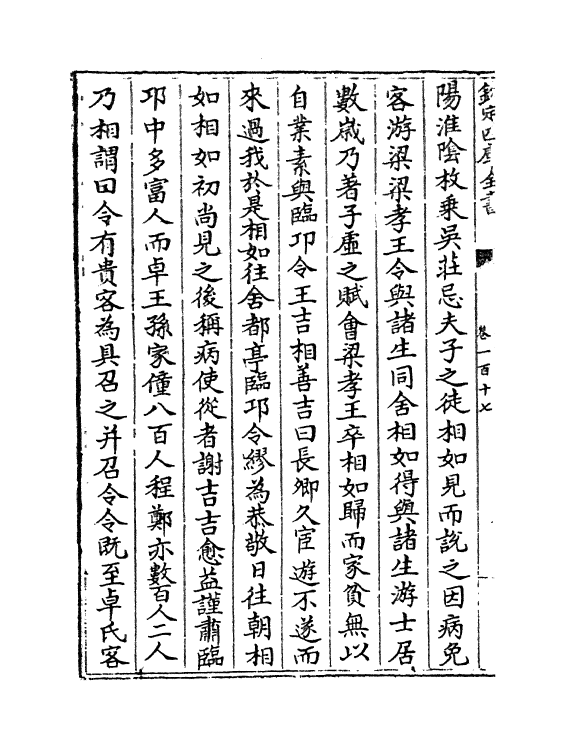 欽定四庫全書
卷一百十七
陽淮陰枚乗吳莊忌夫子之徒相如見而說之因病免
客游梁梁孝王令與諸生同舍相如得與諸生游士居
數嵗乃著子虛之賦會梁孝王卒相如歸而家貧無以
自業素與臨卭令王吉相善吉曰長卿久宦遊不遂而
來過我於是相如往舍都亭臨卭令繆為恭敬日往朝相
如相如初尚見之後稱病使從者謝吉吉愈益謹肅臨
卭中多富人而卓王孫家僮八百人程鄭亦數百人二人
乃相謂曰令有貴客為具召之并召令令既至卓氏客